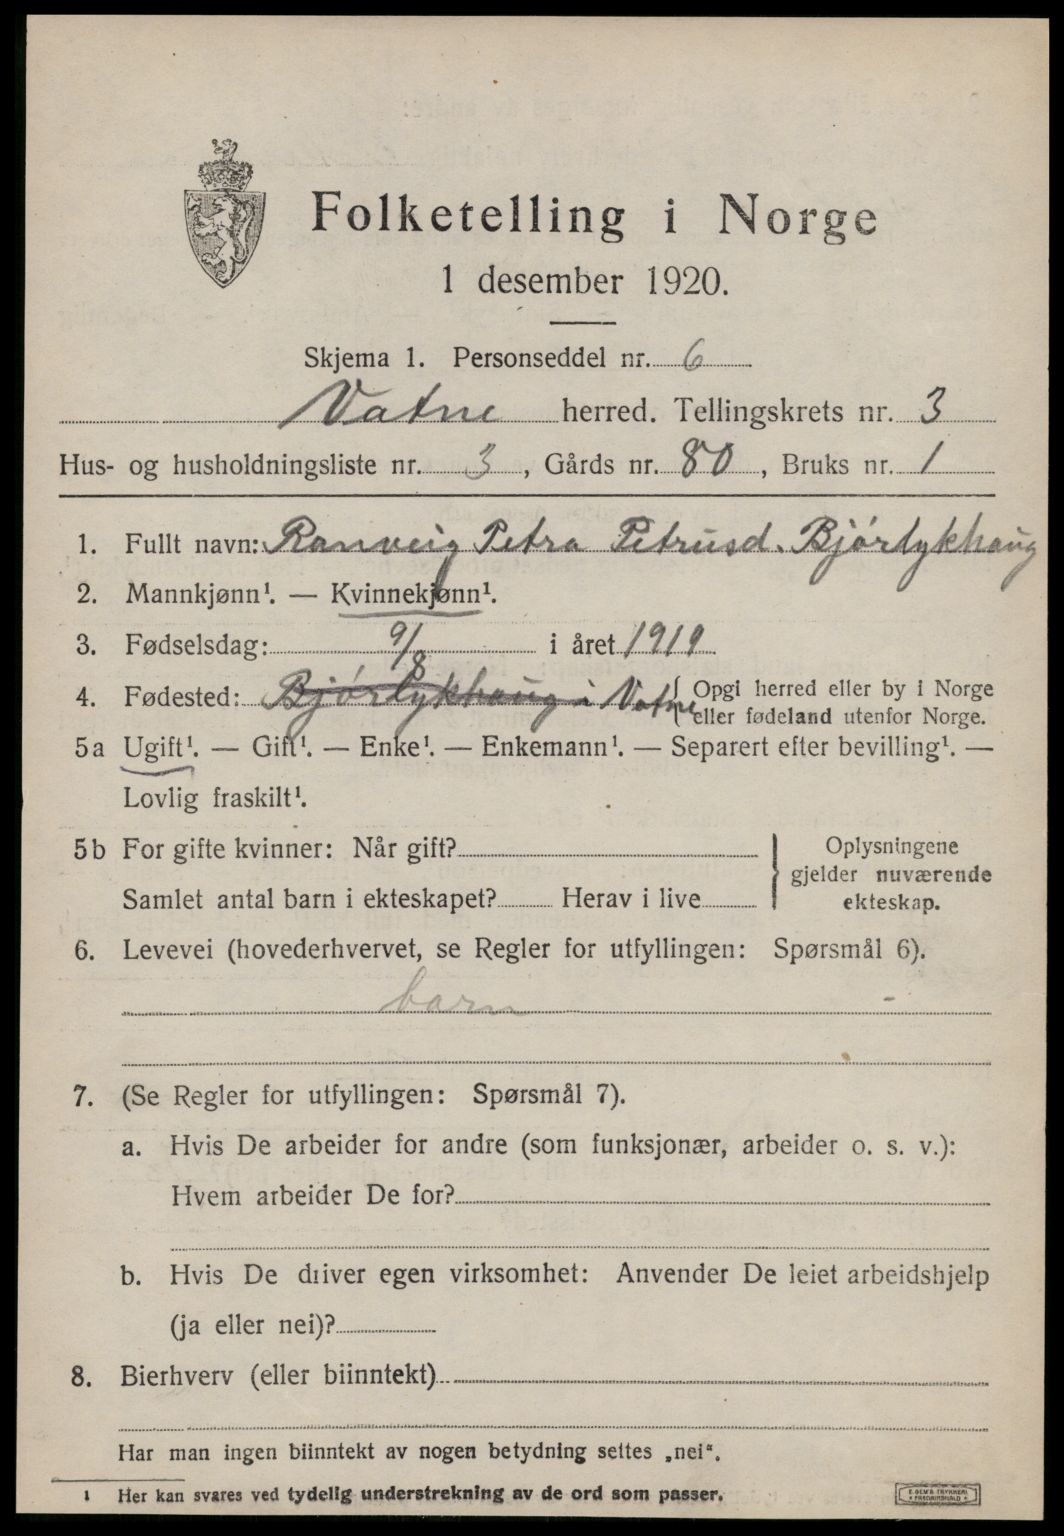 Folketelling i Norge
1 desember 1920.
Skjema 1. Personseddel nr. 6
Vatne herred. Tellingskrets nr. 3
Hus- og husholdningsliste nr. 3, Gårds nr. 80, Bruks nr. 1
1. Fullt navn: Ranveig Petra Petrusd. Bjørlykhaug
2. Mannkjønn¹. — Kvinnekjønn¹.
3. Fødselsdag: 9/8 i året 1919
4. Fødested: Bjørlykhaug i Vatne { Opgi herred eller by i Norge
eller fødeland utenfor Norge.
5a Ugift¹. — Gift¹. — Enke¹. — Enkemann¹. — Separert efter bevilling¹. —
Lovlig fraskilt¹.
5b For gifte kvinner: Når gift?
Samlet antal barn i ekteskapet? Herav i live
} Oplysningene
gjelder nuværende
ekteskap.
6. Levevei (hovederhvervet, se Regler for utfyllingen: Spørsmål 6).
barn
7. (Se Regler for utfyllingen: Spørsmål 7).
a. Hvis De arbeider for andre (som funksjonær, arbeider o. s. v.):
Hvem arbeider De for?
b. Hvis De driver egen virksomhet: Anvender De leiet arbeidshjelp
(ja eller nei)?
8. Bierhverv (eller biinntekt)
Har man ingen biinntekt av nogen betydning settes „nei“.
1 Her kan svares ved tydelig understrekning av de ord som passer.